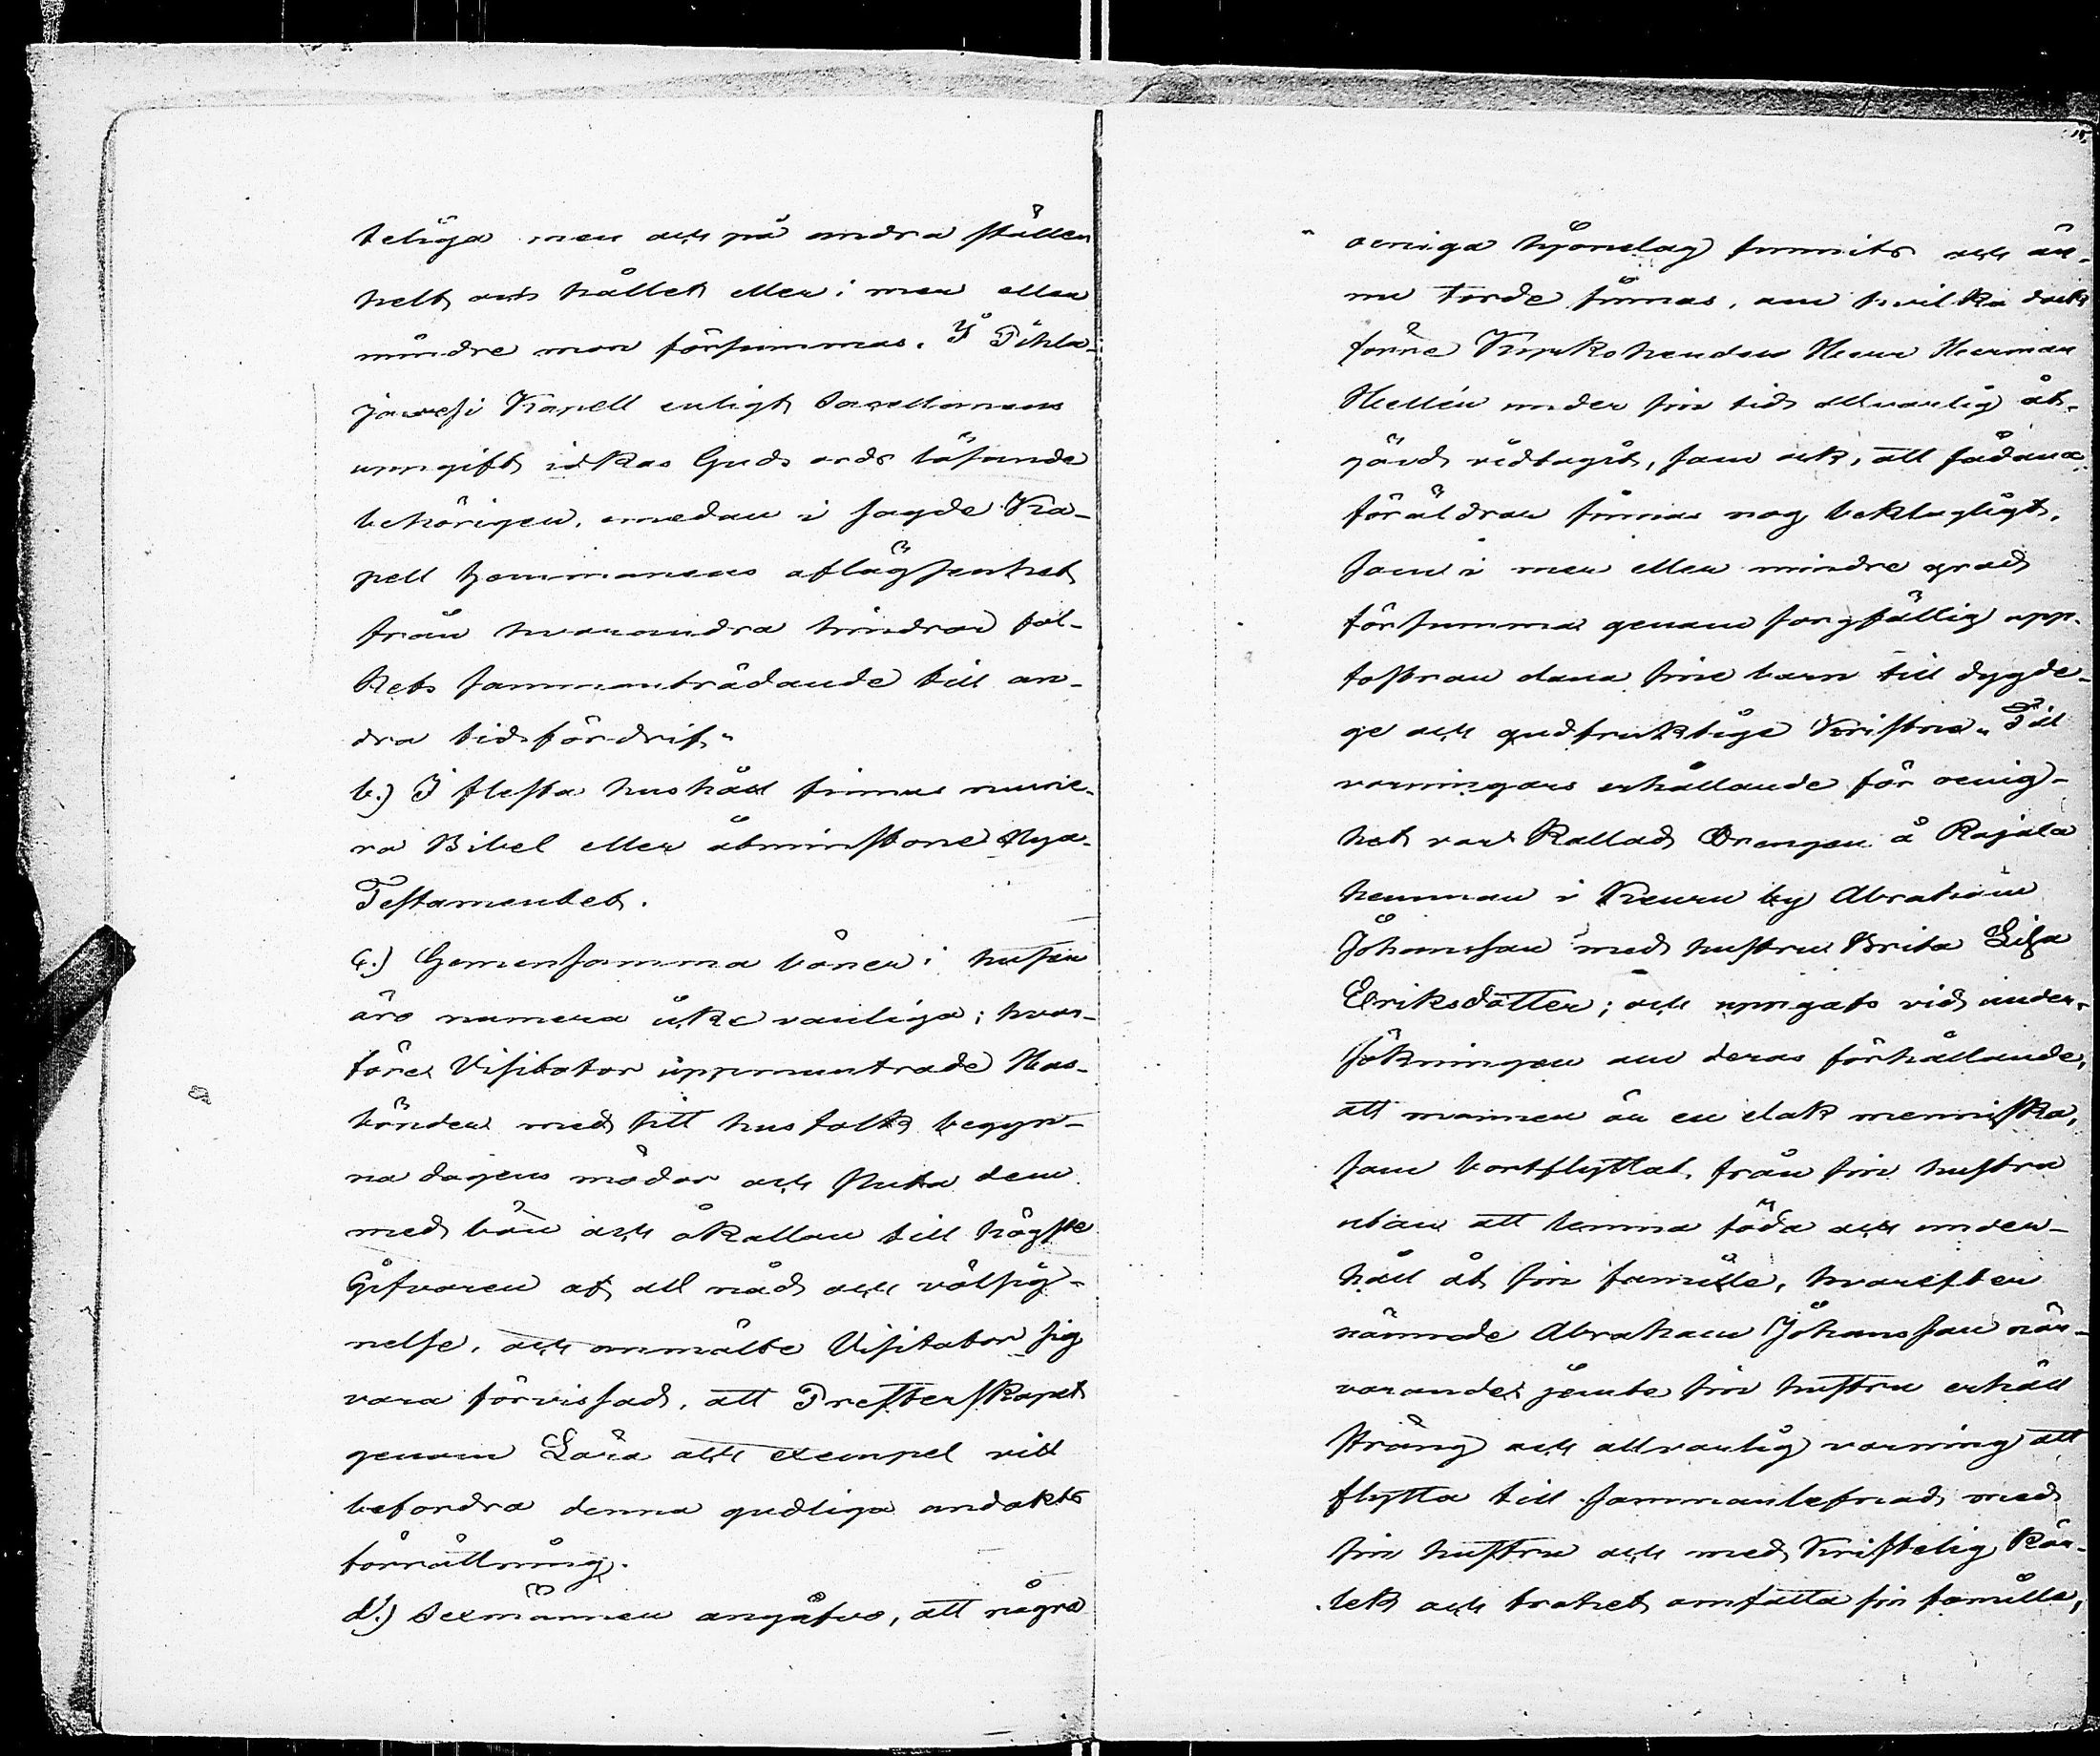 teliga men och på andra ställen
helt och hållet eller i mer eller
mindre mon försummas. I Pihla-
javesi Kapell enligt Sacellanens
uppgift idkas Guds ords läsande
behörigen, emedan i sagde Ka-
pell hemmanens aflägsenhet
från hvarandra hindrar fol-
kets sammanträdande till an-
dra tidsfördrif.
b.) I flesta hushåll finnas nume-
ra Bibel eller åtminstone Nya-
Testamentet.
c.) Gemensamma böner i husen
äro numera icke vanliga; hvar-
före Visitator uppmuntrade Hus-
bönder med sitt husfolk begyn-
na dagens mödor och sluta dem
med bön och åkallan till högste
Gifvaren af all nåd och välsig-
nelse, och anmälte Visitator sig
vara förvissad, att Presterskapet
genom Lära och exempel vill
befordra denna gudliga andakts
förrättning.
d.) Sexmännen angåfvo, att några
oeniga hjonelag funnits och än-
nu torde finnas, om hvilka dock
förre Kyrkoherden Herr Herman
Hellén under sin tid allvarlig åt-
gärd vidtagit, som ock, att sådana
föräldrar finnas nog beklagligt,
som i mer eller mindre grad
försumma genom sorgfällig upp-
fostran dana sine barn till dygde-
ge och gudfruktige Kristna. Till
varningars erhållande för oenig-
het var kallad Drengen å Rajala
hemman i Keuru by Abraham
Johansson med hustru Brita Lisa
Eriksdotter; och uppgafs vid under-
sökningen om deras förhållande,
att mannen är en elak menniska,
som bortflyttat från sin hustru
utan att lemna föda och under-
håll åt sin familie, hvarefter
nämnde Abraham Johansson när-
varande jemte sin hustru erhöll
sträng och allvarlig varning att
flytta till sammanlefnad med
sin hustru och med Kristelig kär-
lek och trohet omfatta sin familie,